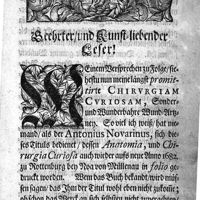 Geehrter/und Kunst-liebender
Leser!
MEinem Versprechen zu Folge/sie-
hestu nun meine längst promit-
tirte CHIRURGIAM
CURIOSAM, Sonder-
und Wunderbahre Wund-Artz-
ney. So viel ich weiß/hat nie-
mand/als der Antonius Novarinus, sich die-
ses Tituls bedienet/dessen Anatomia, und Chi-
rurgia Curiosa auch wieder auffs neue Anno 1682.
zu Rottenburg den Noa von Mülleman in folio ge-
druckt worden. Wem das Buch bekandt/wird müs-
sen sagen/das Ihn der Titul wohl eben nicht zukomme;
obschon das Werck an sich selbsten nicht